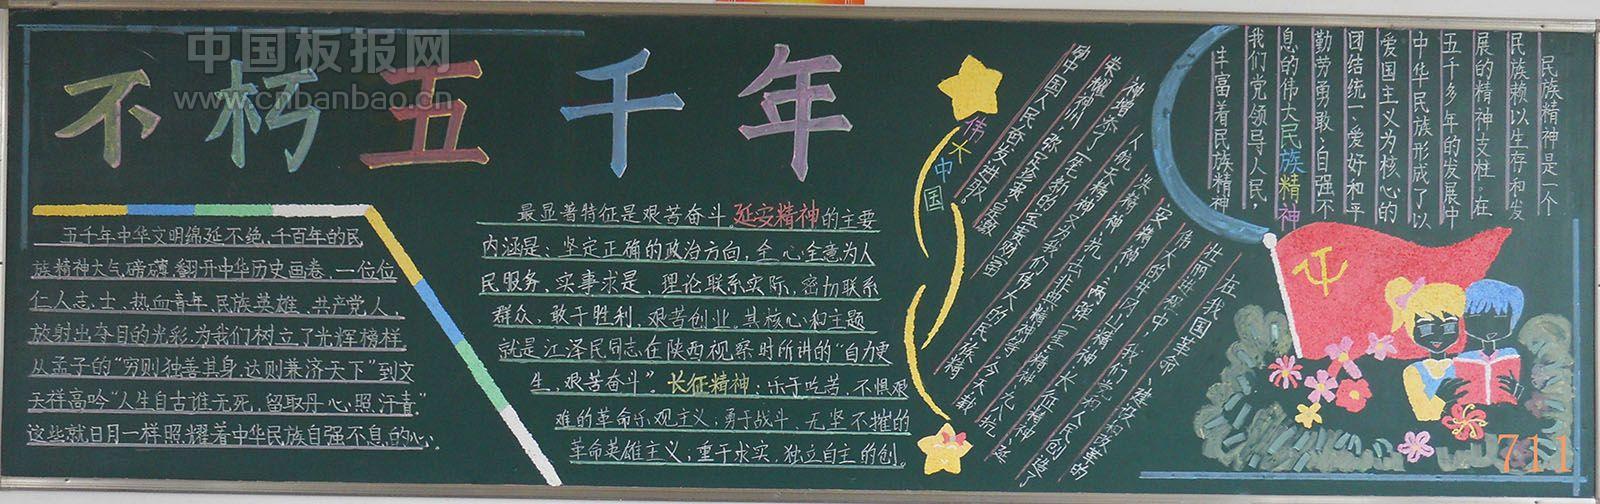 中国板报网
www.cnbanbao.cn
不朽五千年
五千年中华文明绵延不绝、千百年的民
族精神大气磅礴、翻开中华历史画卷、一位位
仁人志士、热血青年、民族英雄、共产党人、
放射出夺目的光彩、为我们树立了光辉榜样
从孟子的“穷则独善其身、达则兼济天下”到文
天祥高吟“人生自古谁无死，留取丹心照汗青”
这些就日月一样照耀着中华民族自强不息的心、
最显著特征是艰苦奋斗。延安精神的主要
内涵是：坚定正确的政治方向，全心全意为人
民服务，实事求是，理论联系实际，密切联系
群众、敢于胜利，艰苦创业，其核心和主题
就是江泽民同志在陕西视察时所讲的“自力更
生、艰苦奋斗”。长征精神：乐于吃苦，不惧艰
难的革命乐观主义；勇于战斗、无坚不摧的
革命英雄主义；重于求实、独立自主的创。
伟大中国
民族精神是一个
民族赖以生存和发
展的精神支柱。在
五千多年的发展中
中华民族形成了以
爱国主义为核心的
团结统一、爱好和平
勤劳勇敢、自强不
息的伟大民族精神
我们党领导人民，
丰富着民族精神
在我国革命、建设和改革的
壮丽进程中，我们党和人民创造了
伟大的井冈山精神、长征精神、延
安精神、“两弹一星”精神、九八抗
洪精神、抗击非典精神等。今天载
人航天精神又为我们伟大的民族精
神增添了一座新的宝贵财富
荣耀神州、弥足珍贵、是激
励中国人民奋发进取。
711